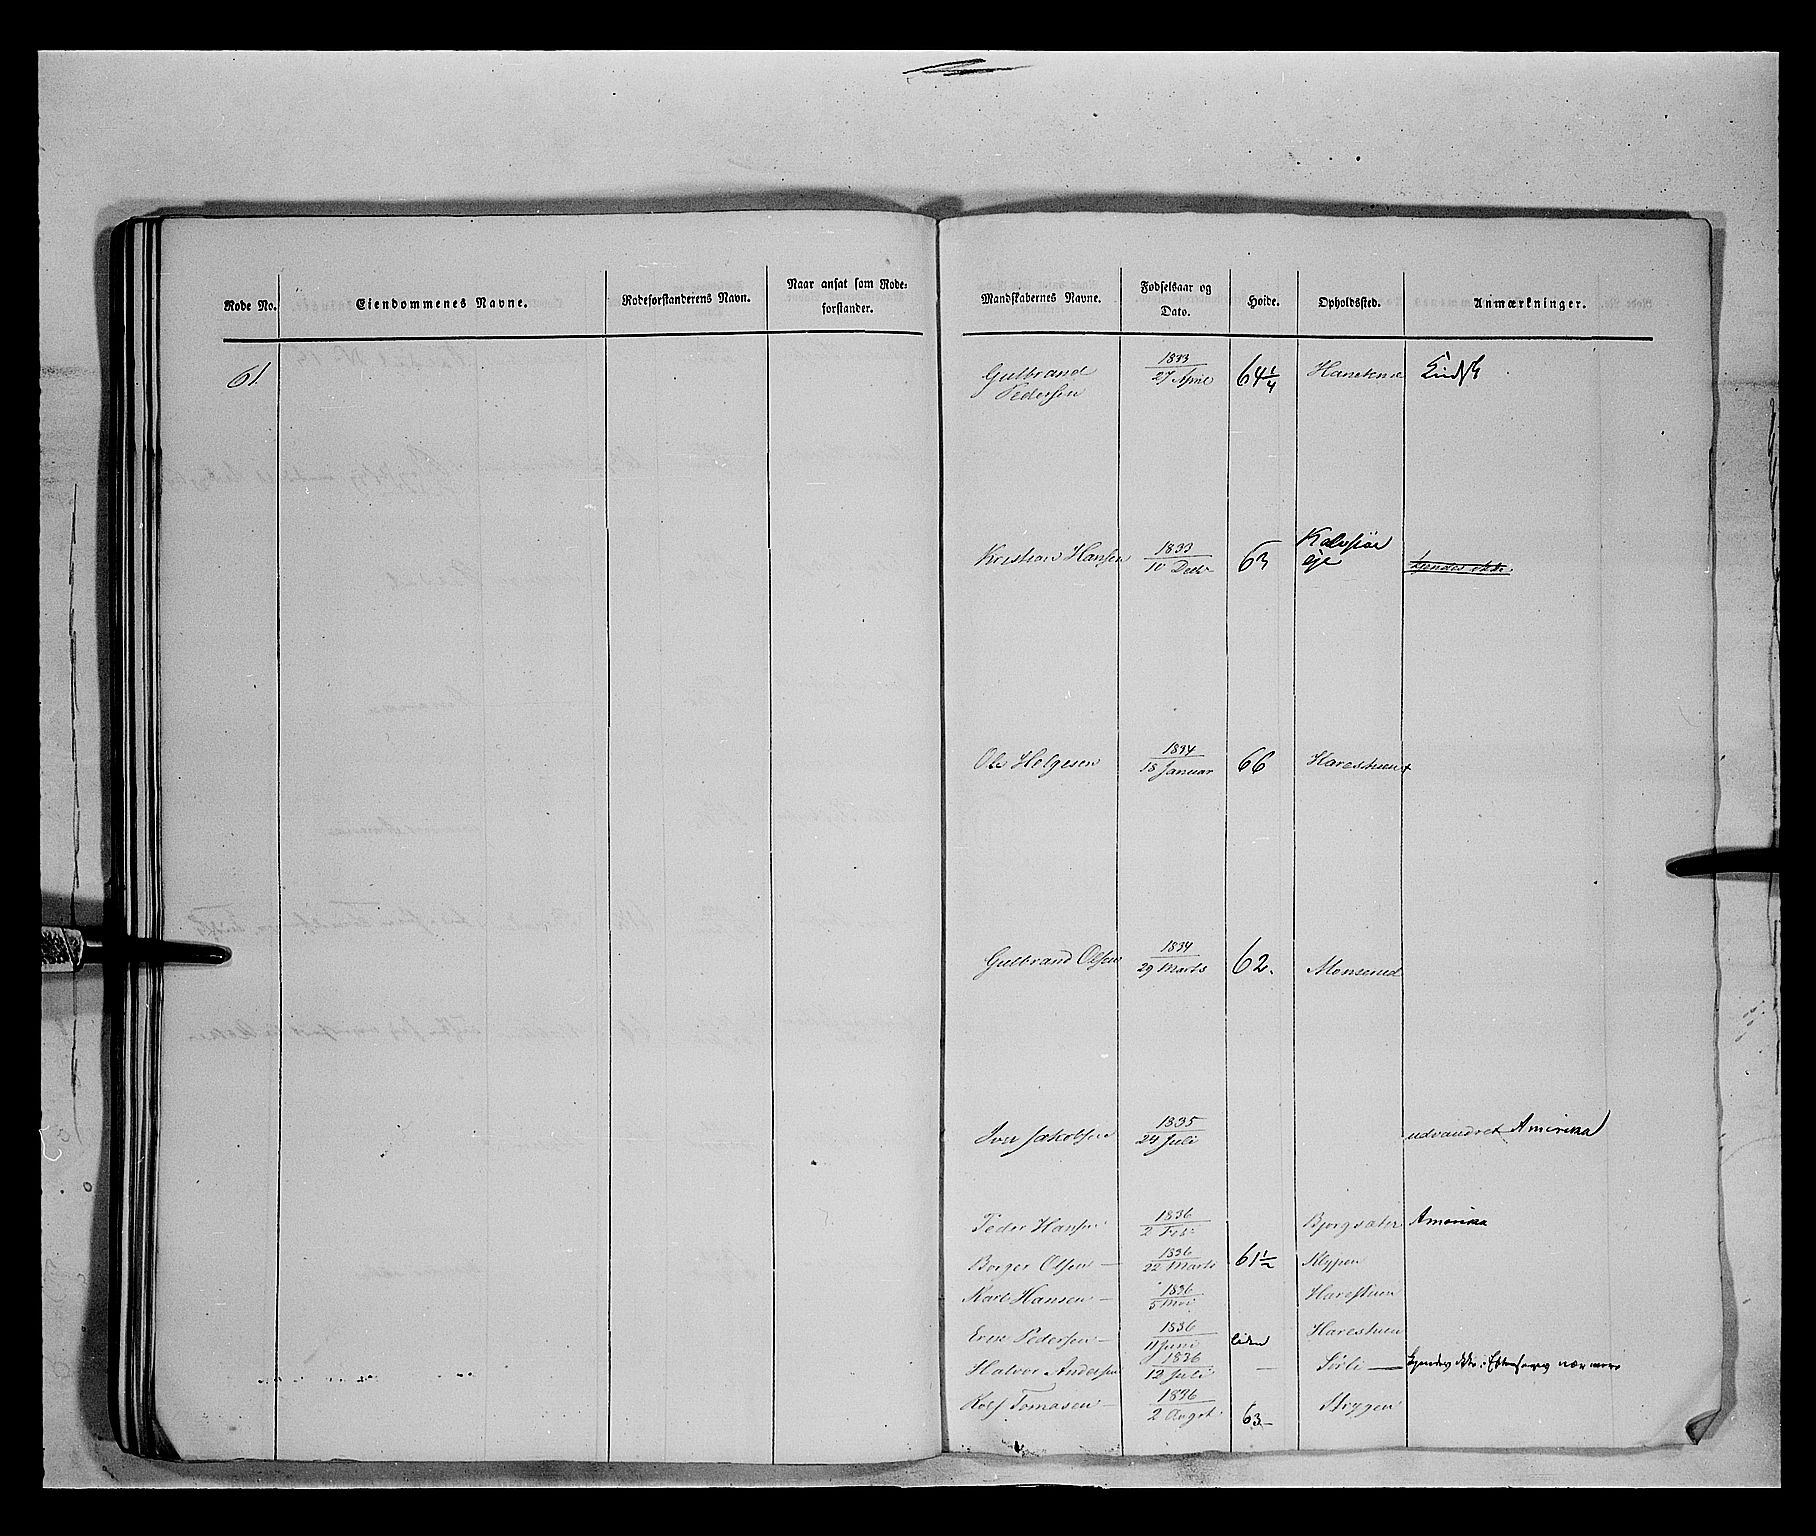 Rode No. Eiendommenes Navne. Rodeforstanderens Navn. Naar ansat som Rodeforstander. Mandskabernes Navne. Fødselsaar og Dato. Hoide. Opholdssted. Anmærkninger.
61. Gulbrand Pedersen 1833 27 April 64 1/4
Kristian Hansen 1833 10 Decbr 63 eje kjendes ikke.
Ole Helgesen 1834 18 Januar 66 Harestuen
Gulbrand Olsen 1834 29 Marts 62. Monserud
Iver Jakobsen 1835 24 Juli udvandret Amerika
Peder Hansen 1836 2 Feb. Bjørgsæter Amerika
Borger Olsen — 1836 22 Marts 61 1/2 Klypen
Karl Hansen — 1836 5 Mai Harestuen
Erik Pedersen — 1836 11 Juni liden Harestuen
Halvor Andersen 1836 12 Juli — Sørli — kjendes ikke. nærmere
Rolf Tomasen — 1836 2 Augst 63 — Strygen